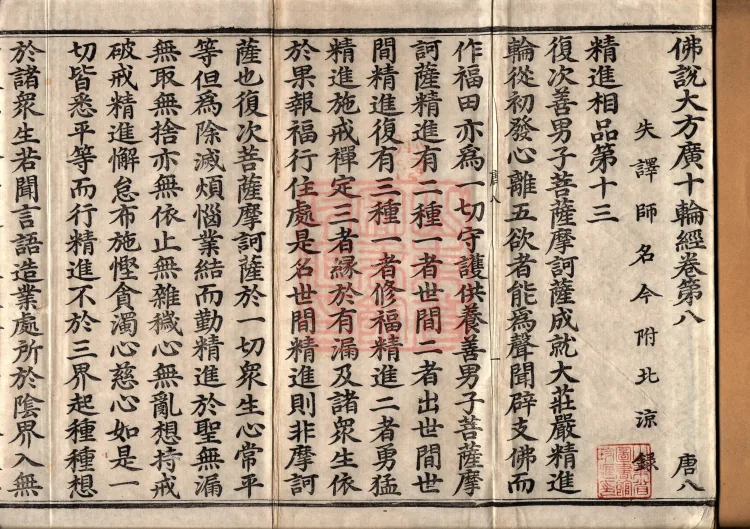 佛說大方廣十輪經卷第八 唐八
失譯師名今附北涼錄
精進相品第十三
復次善男子菩薩摩訶薩成就大莊嚴精進
輪從初發心離五欲者能為聲聞辟支佛而
作福田亦為一切守護供養善男子菩薩摩
訶薩精進有二種一者世間二者出世間世
間精進復有三種一者修福精進二者勇猛
精進施戒禪定三者緣於有漏及諸衆生依
於果報福行住處是名世間精進則非摩訶
薩也復次菩薩摩訶薩於一切衆生心常平
等但為除滅煩惱業結而勤精進於聖無漏
無取無捨亦無依止無雜穢心無亂想持戒
破戒精進懈怠布施慳貪濁心慈心如是一
切皆悉平等而行精進不於三界起種種想
於諸衆生若聞言語造業處所於陰界入無
唐八